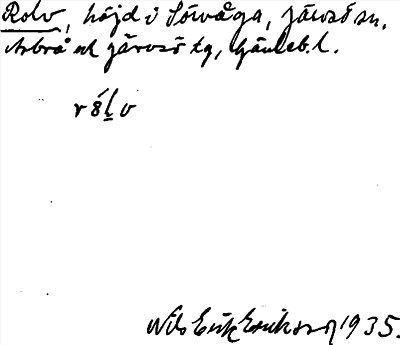 Rolv, höjd i Sörvåga, Järvsö sn,
Arbrå ok Järvsö tg, Gävleb. l.
Nils Erik Eriksson 1935.